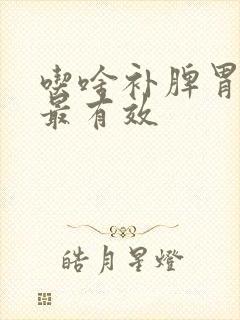 喫啥补脾胃
最有效
皓月星燈